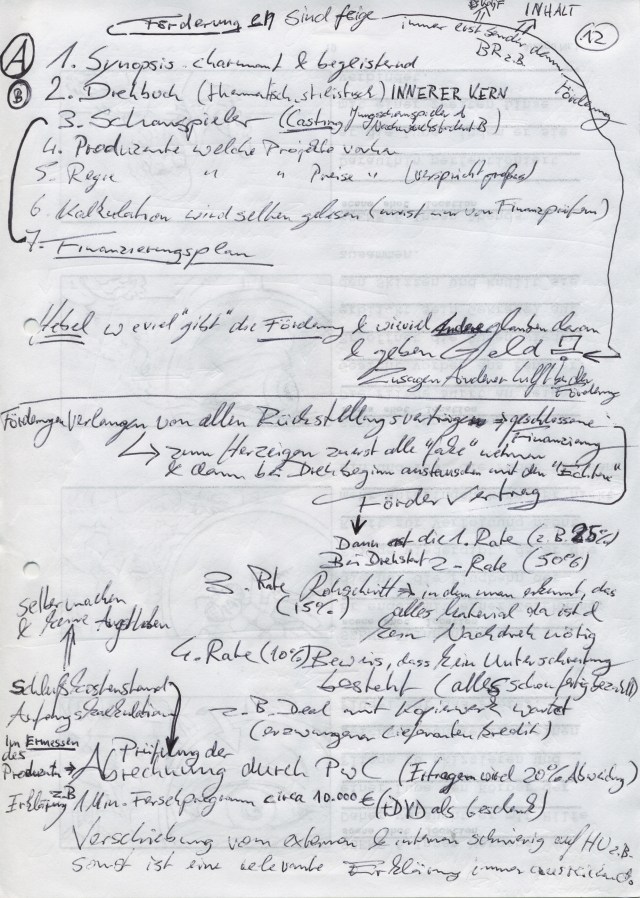 INHALT
Förderungen sind feige
immer erst Sender dann Förderung
BR z.B.
12
A 1. Synopsis charmant & begeisternd
B 2. Drehbuch (thematisch, stilistisch) INNERER KERN
3. Schauspieler (Casting
4. Produzente welche Projekte vorher
5. Regie " " Preise " (verspricht
6. Kalkulation wird selten gelesen (meist nur von Finanzprüfern)
7. Finanzierungsplan
Hebel wieviel "gibt" die Förderung & wieviel Andere glauben daran
& geben Geld
Zusagen Anderer hilft bei der Förderung
Förderungen verlangen von allen Rückstellungsverträge → geschlossene Finanzierung
→ zum Herzeigen zuerst alle "fake" nehmen
& dann bei Drehbeginn austauschen mit den "Echten"
Fördervertrag
Dann die 1. Rate (z.B. 25%)
Bei Drehstart 2. Rate (50%)
3. Rate Rohschnitt → in dem man erkennt, das
(15%) alles Material da ist &
kein Nachdreh nötig
selber machen
& keine Angst haben
4. Rate (10%) Beweis, dass kein Unterschreitung
besteht (alles schon fertig bezahlt)
Schlußkostenstand
Anfangskalkulation
z.B. Deal mit Kopierwerk wartet
(erzwungener Lieferanten Kredit)
Im Ermessen
des
Produzent → Prüfung der
Abrechnung durch PwC (Ertragen wird 20% Abweichung)
Erklärung z.B. 1 Min. Fernsehprogramm circa 10.000 € (+DVD als Geschenk)
Verschiebung vom externen & internen schwierig auf HU z.B.
sonst ist eine relevante Erklärung immer ausreichend.